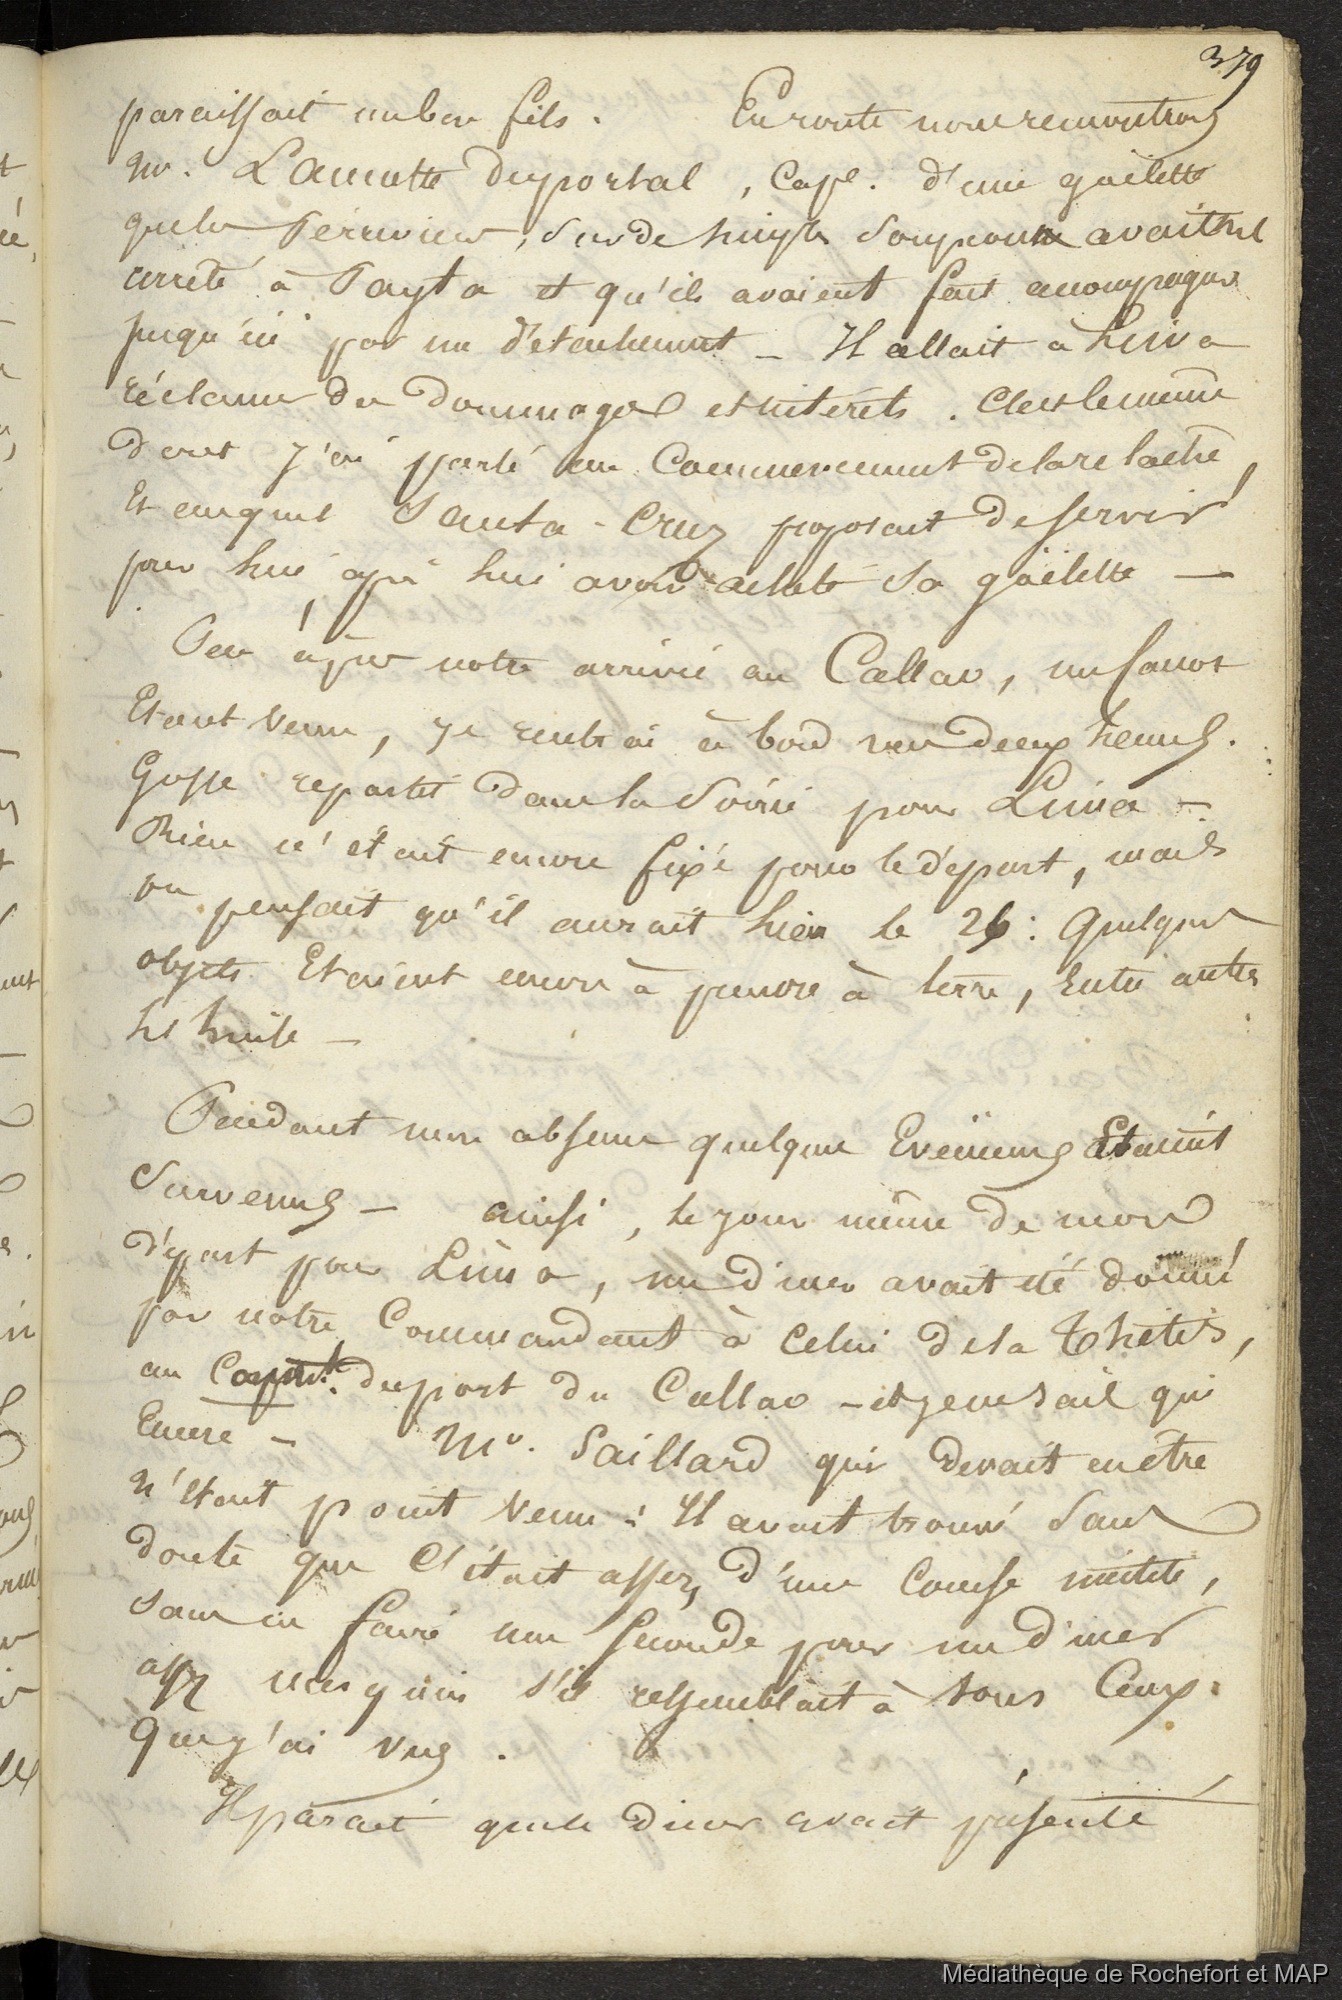 379
paraissait un bon fils. En route nous rencontrons
Mr. Lamotte Duportal, Cape. d'une goëlette
que les Péruviens, sur de simples soupçons avaient
arrêté à Payta et qu'ils avaient fait accompagner
jusqu'ici par un détachement _ Il allait à Lima
réclamer des dommages et intérêts. C'est le même
dont j'ai parlé au Commencement de la relâche,
Et auquel Santa-Cruz proposait de servir
pour lui après lui avoir acheté sa goëlette —
Peu après notre arrivée au Callao, un canot
Etant Venu, je rentrai à bord vers deux heures.
Gosse repartit dans la Soirée pour Lima —
Rien n'était encore fixé pour le départ, mais
on pensait qu'il aurait lieu le 26: Quelques
objets Etaient encore à prendre à terre, Entre autres
les huile —
Pendant mon absence quelques Evénemens Etaient
Survenus — ainsi, le jour même de mon
départ pour Lima, un dîner avait été donné
par notre Commandant à Celui de la Thétis,
au Capne. du port du Callao — et je ne sais qui
Encore — Mr. Saillard qui devait en être
n'était point Venu: Il avait trouvé Sans
doute que C'était assez d'une Course inutile,
Sans en faire une seconde pour un dîner
assez mesquin s'il ressemblait à tous Ceux
Que j'ai vus.
Il parait que le diner avait présenté
Médiathèque de Rochefort et MAP